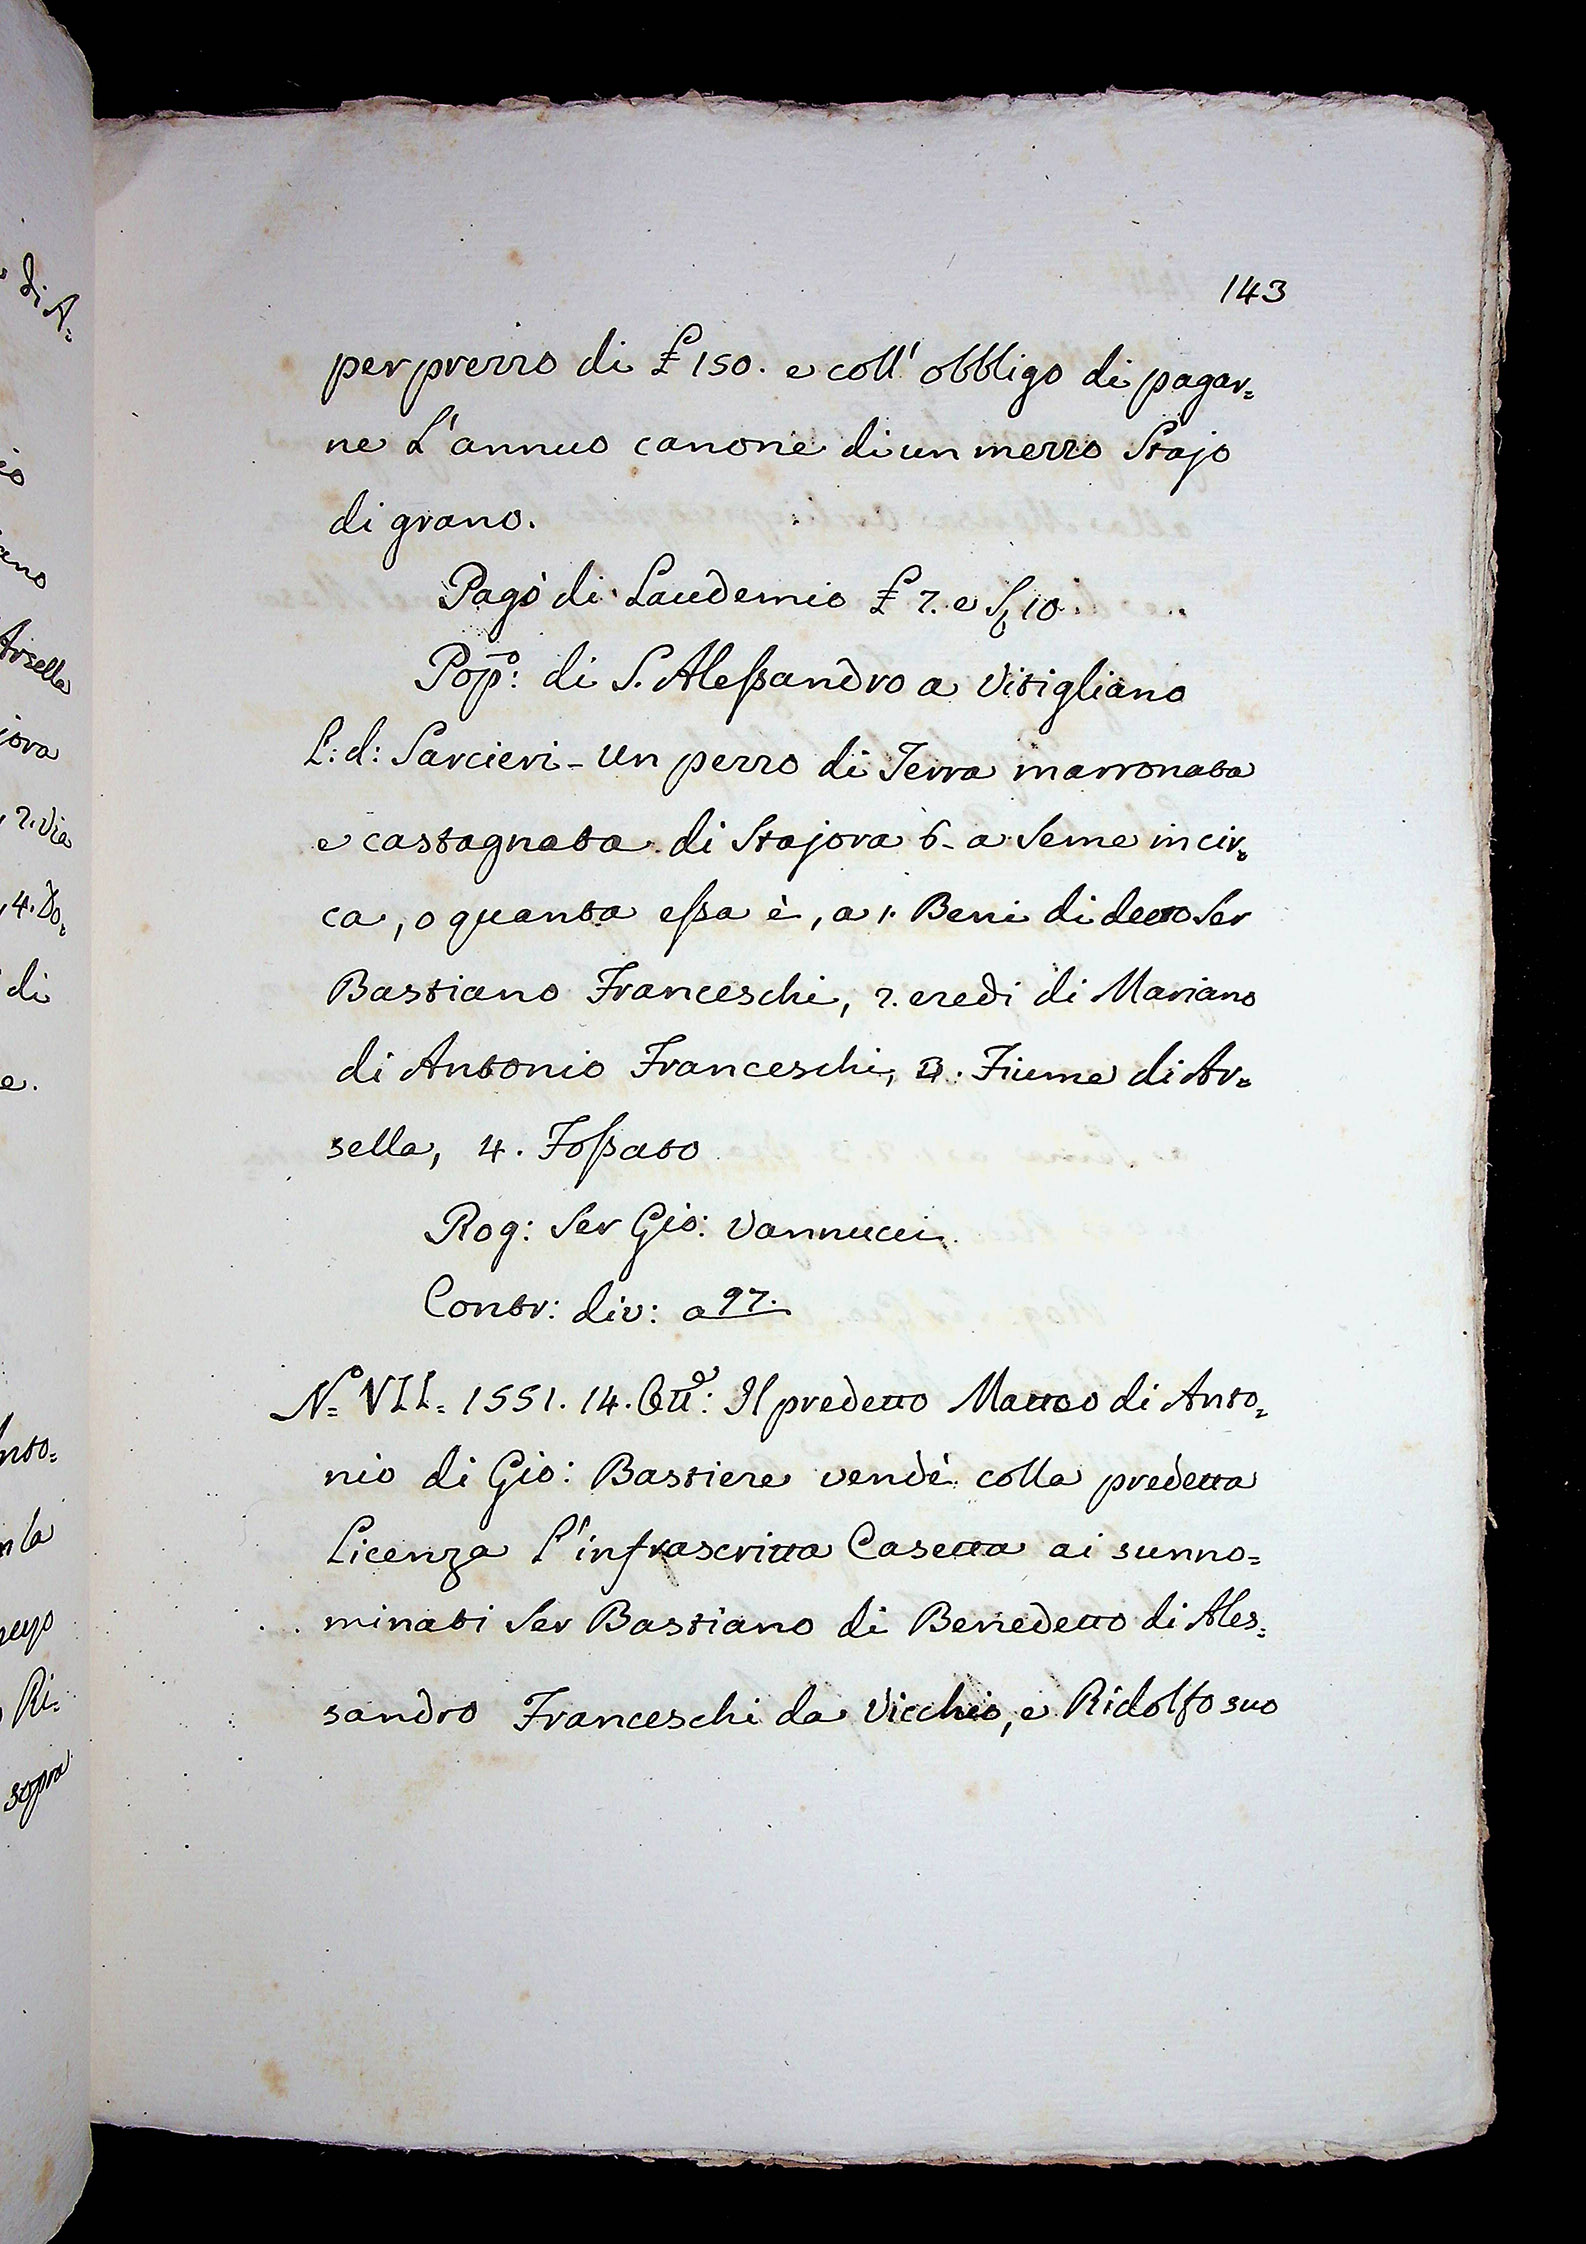 di A=
io
ano
Arsella
jora
, 2. Via
, 4. Do=
di
e.
Anto=
la
Ri=
sopra
143
per prezzo di £ 150. e coll' obbligo di pagar=
ne L'annuo canone di un mezzo Stajo
di grano.
Pagò di Laudemio £ 7. e S, 10
Pop:º di S. Alessandro a Vitigliano
L: d: Sarcieri - Un pezzo di Terra marronata
e castagnata di Stajora 6 - a Seme incir=
ca, o quanta essa è, a 1. Beni di detto Ser
Bastiano Franceschi, 2. eredi di Mariano
di Antonio Franceschi, 3. Fiume di Ar=
sella, 4. Fossato
Rog: Ser Gio: Vannucci.
Contr: div: a 97.
Nº VII. 1551. 14. Ott:º Il predetto Matteo di Anto=
nio di Gio: Bastiere vendè colla predetta
Licenza L'infrascritta Casetta ai sunno=
minati Ser Bastiano di Benedetto di Ales=
sandro Franceschi da Vicchio, e Ridolfo suo